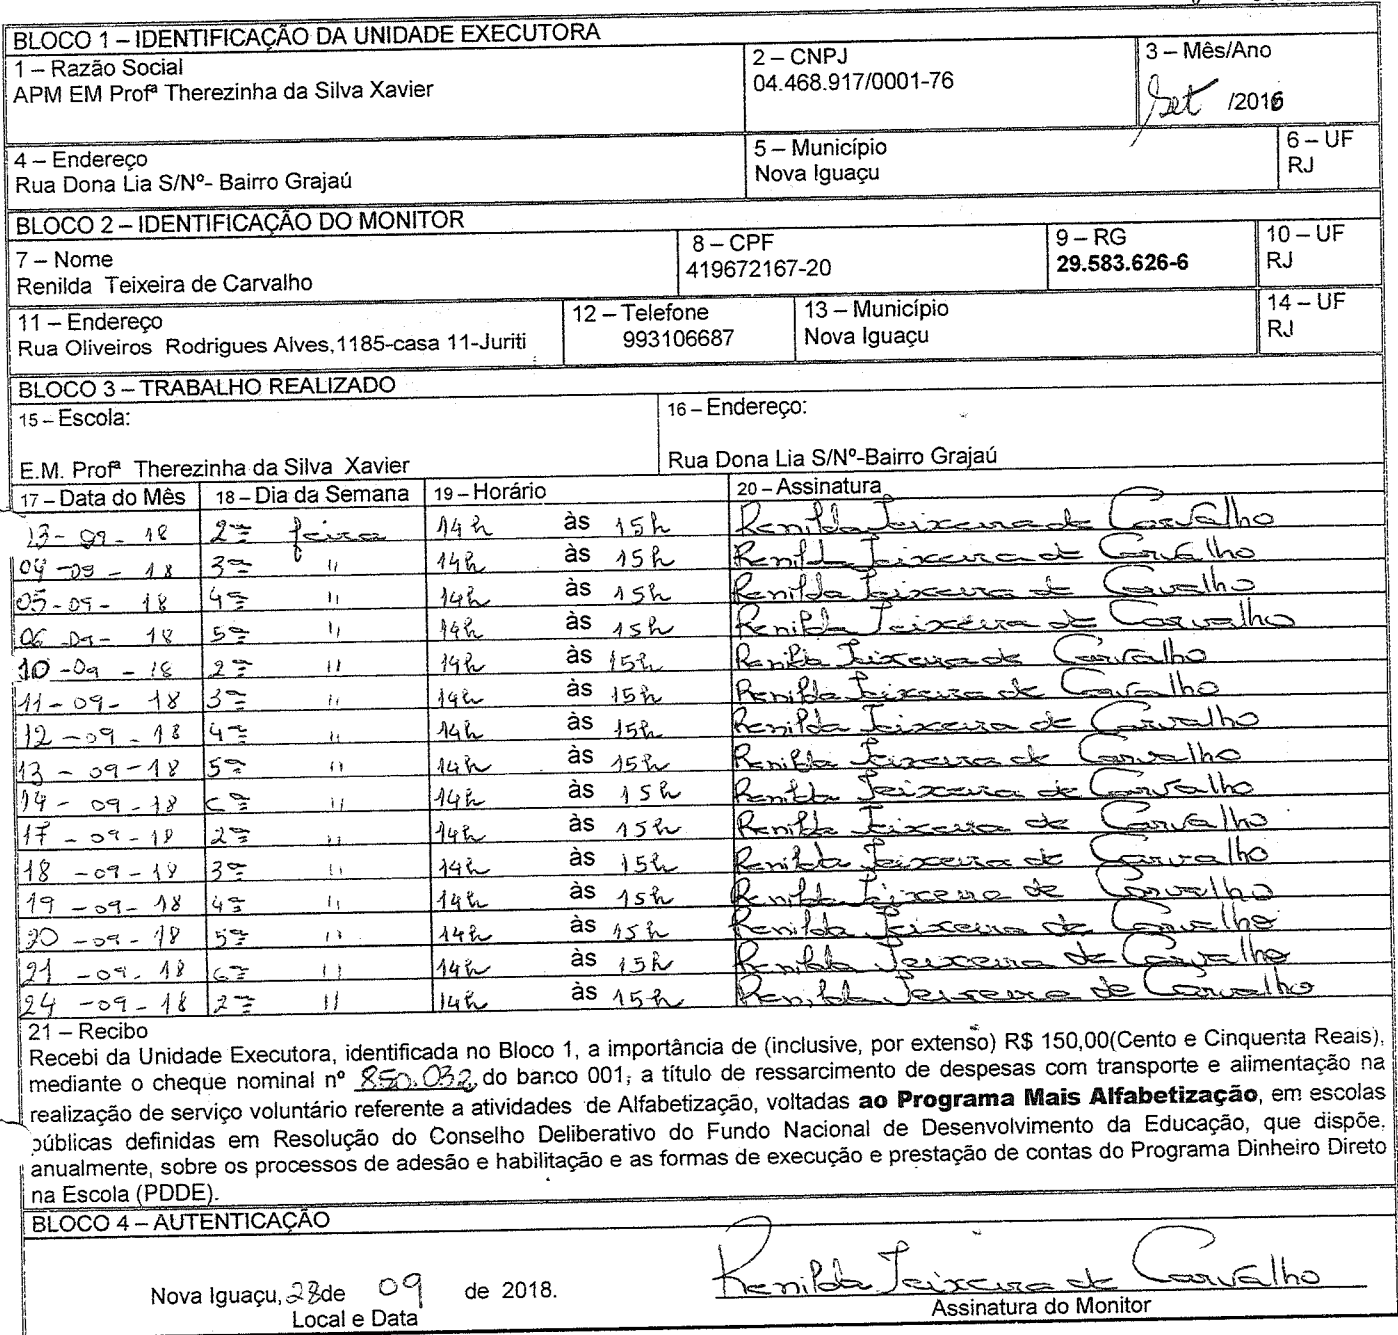 BLOCO 1 – IDENTIFICAÇÃO DA UNIDADE EXECUTORA
1 – Razão Social
APM EM Profª Therezinha da Silva Xavier
2 – CNPJ
04.468.917/0001-76
3 – Mês/Ano
Set /2016
4 – Endereço
Rua Dona Lia S/Nº- Bairro Grajaú
5 – Município
Nova Iguaçu
6 – UF
RJ
BLOCO 2 – IDENTIFICAÇÃO DO MONITOR
7 – Nome
Renilda Teixeira de Carvalho
8 – CPF
419672167-20
9 – RG
29.583.626-6
10 – UF
RJ
11 – Endereço
Rua Oliveiros Rodrigues Alves,1185-casa 11-Juriti
12 – Telefone
993106687
13 – Município
Nova Iguaçu
14 – UF
RJ
BLOCO 3 – TRABALHO REALIZADO
15 – Escola:
E.M. Profª Therezinha da Silva Xavier
16 – Endereço:
Rua Dona Lia S/Nº-Bairro Grajaú
17 – Data do Mês 18 – Dia da Semana 19 – Horário 20 – Assinatura
09-18 2ª feira 14h às 15h Renilda Teixeira de Carvalho
04-09-18 3ª " 14h às 15h Renilda Teixeira de Carvalho
05-09-18 4ª " 14h às 15h Renilda Teixeira de Carvalho
06-09-18 5ª " 14h às 15h Renilda Teixeira de Carvalho
10-09-18 2ª " 14h às 15h Renilda Teixeira de Carvalho
11-09-18 3ª " 14h às 15h Renilda Teixeira de Carvalho
12-09-18 4ª " 14h às 15h Renilda Teixeira de Carvalho
13-09-18 5ª " 14h às 15h Renilda Teixeira de Carvalho
14-09-18 6ª " 14h às 15h Renilda Teixeira de Carvalho
17-09-18 2ª " 14h às 15h Renilda Teixeira de Carvalho
18-09-18 3ª " 14h às 15h Renilda Teixeira de Carvalho
19-09-18 4ª " 14h às 15h Renilda Teixeira de Carvalho
20-09-18 5ª " 14h às 15h Renilda Teixeira de Carvalho
21-09-18 6ª " 14h às 15h Renilda Teixeira de Carvalho
24-09-18 2ª " 14h às 15h Renilda Teixeira de Carvalho
21 – Recibo
Recebi da Unidade Executora, identificada no Bloco 1, a importância de (inclusive, por extenso) R$ 150,00(Cento e Cinquenta Reais),
mediante o cheque nominal nº 850.032, do banco 001, a título de ressarcimento de despesas com transporte e alimentação na
realização de serviço voluntário referente a atividades de Alfabetização, voltadas ao Programa Mais Alfabetização, em escolas
públicas definidas em Resolução do Conselho Deliberativo do Fundo Nacional de Desenvolvimento da Educação, que dispõe,
anualmente, sobre os processos de adesão e habilitação e as formas de execução e prestação de contas do Programa Dinheiro Direto
na Escola (PDDE).
BLOCO 4 – AUTENTICAÇÃO
Nova Iguaçu, 28 de 09 de 2018.
Local e Data
Renilda Teixeira de Carvalho
Assinatura do Monitor